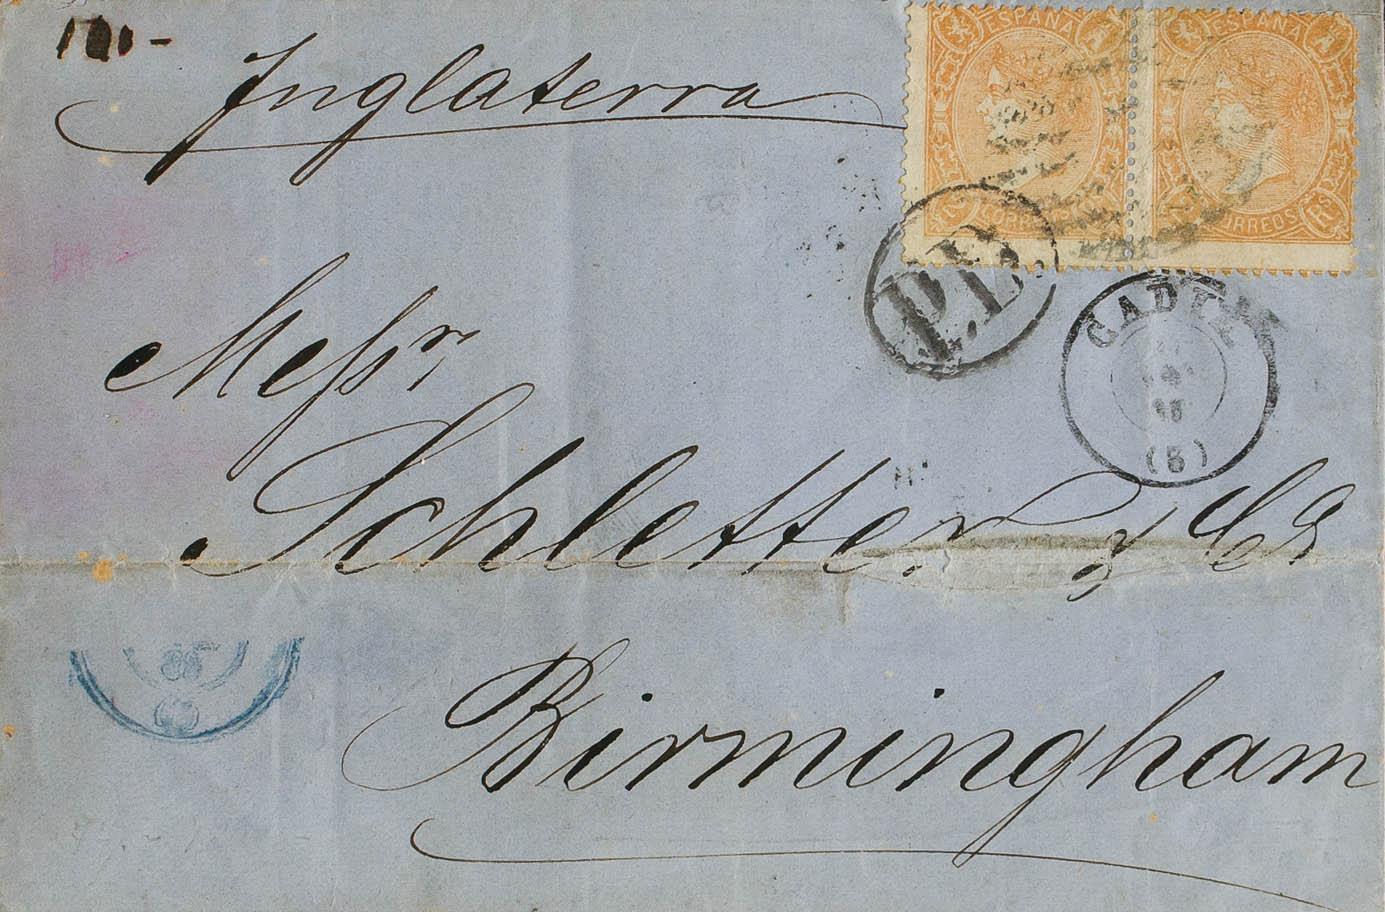 Inglaterra
ESPAÑA
CORREOS Rs
ESPAÑA
CORREOS Rs
P.D.
CADIZ
(3)
Messrs
Schletter y Ca
Birmingham